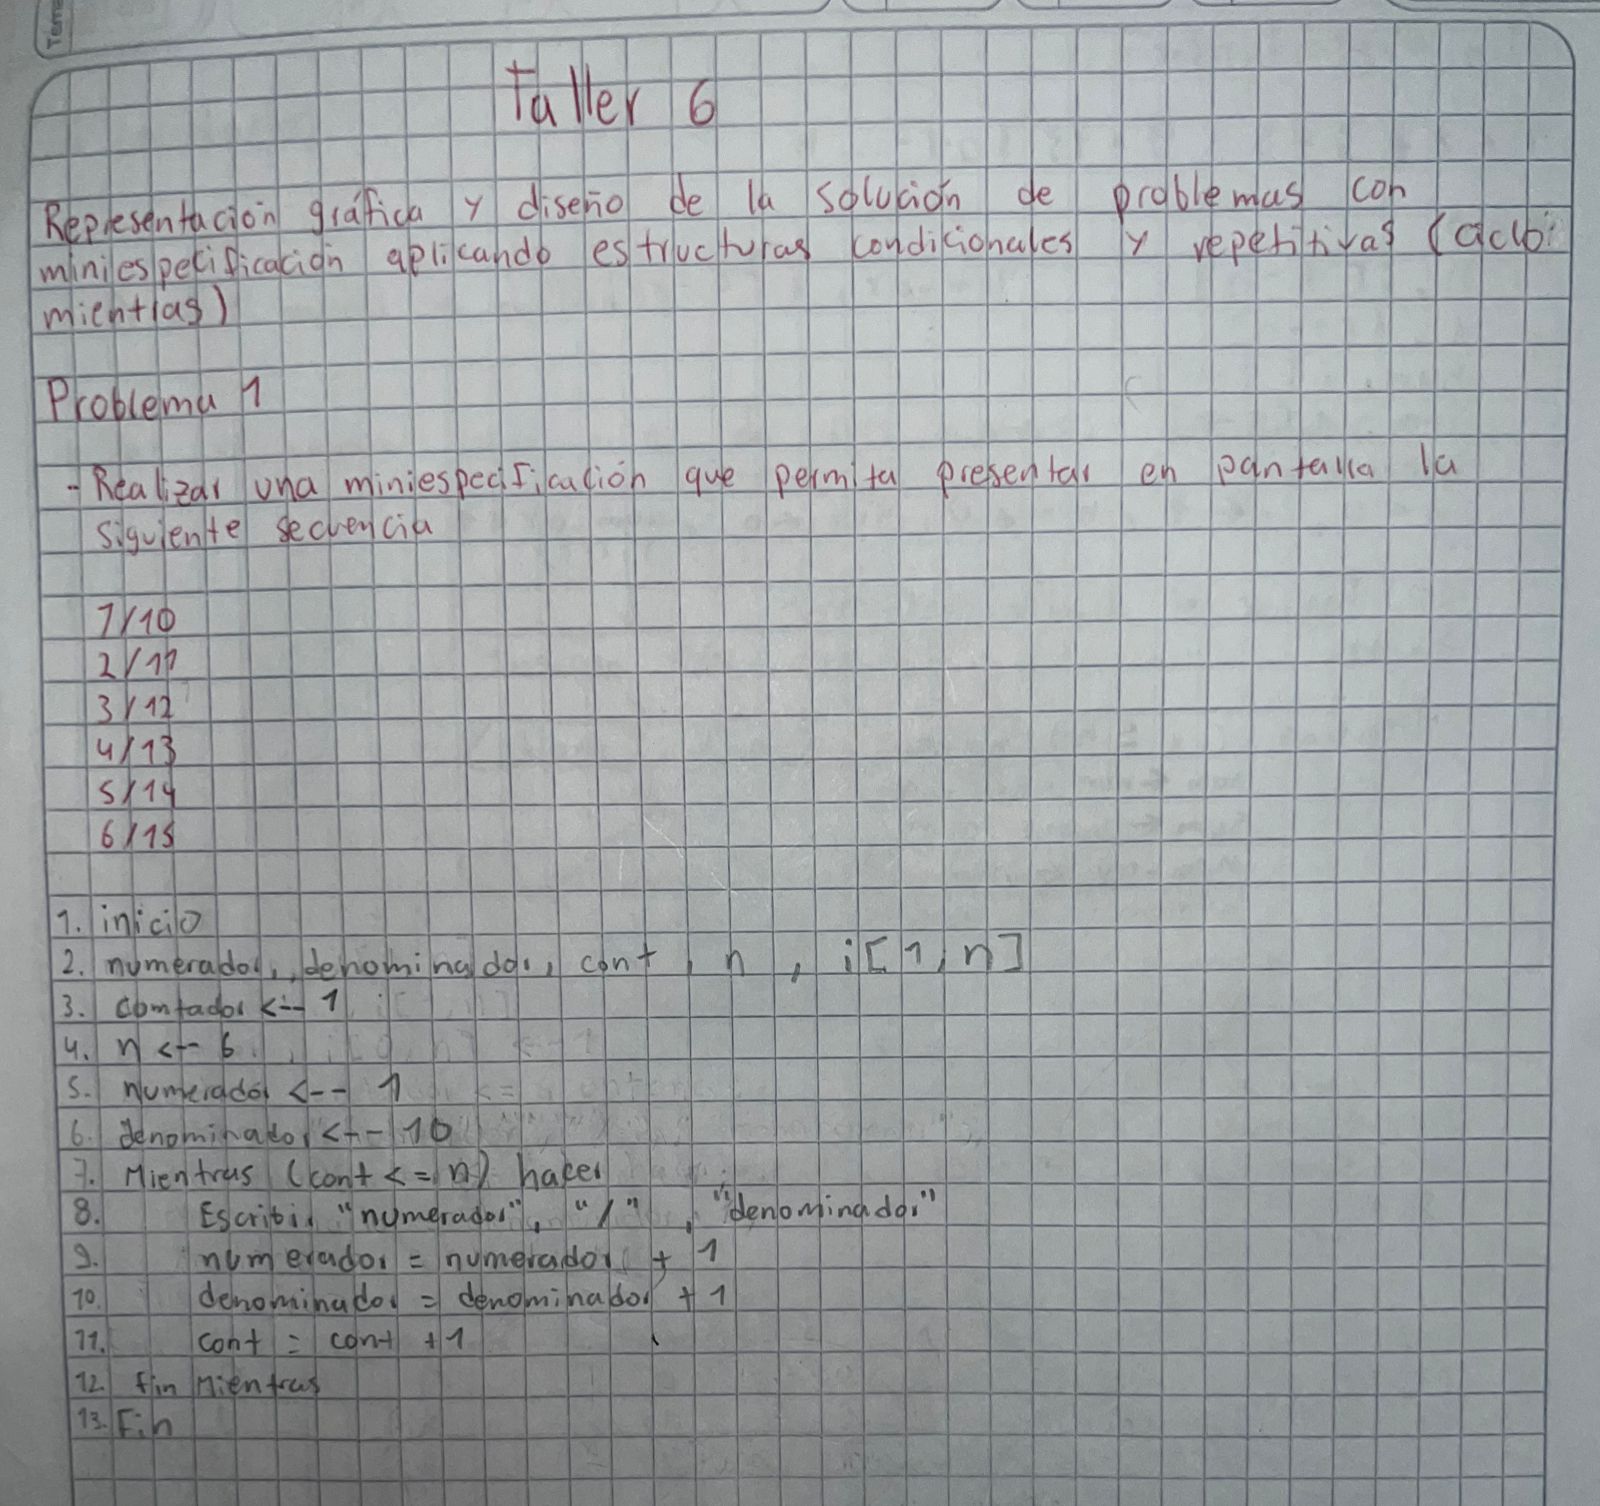 Taller 6
Representación gráfica y diseño de la solución de problemas con
miniespecificación aplicando estructuras condicionales y repetitivas (ciclo
mientras)
Problema 1
- Realizar una miniespecificación que permita presentar en pantalla la
siguiente secuencia
1/10
2/11
3/12
4/13
5/14
6/15
1. inicio
2. numerador, denominador, cont, n, i[1, n]
3. contador <-- 1
4. n <-- 6
5. numerador <-- 1
6. denominador <-- 10
7. Mientras (cont <= n) hacer
8. Escribir "numerador", "/", "denominador"
9. numerador = numerador + 1
10. denominador = denominador + 1
11. cont = cont + 1
12 fin Mientras
13. Fin